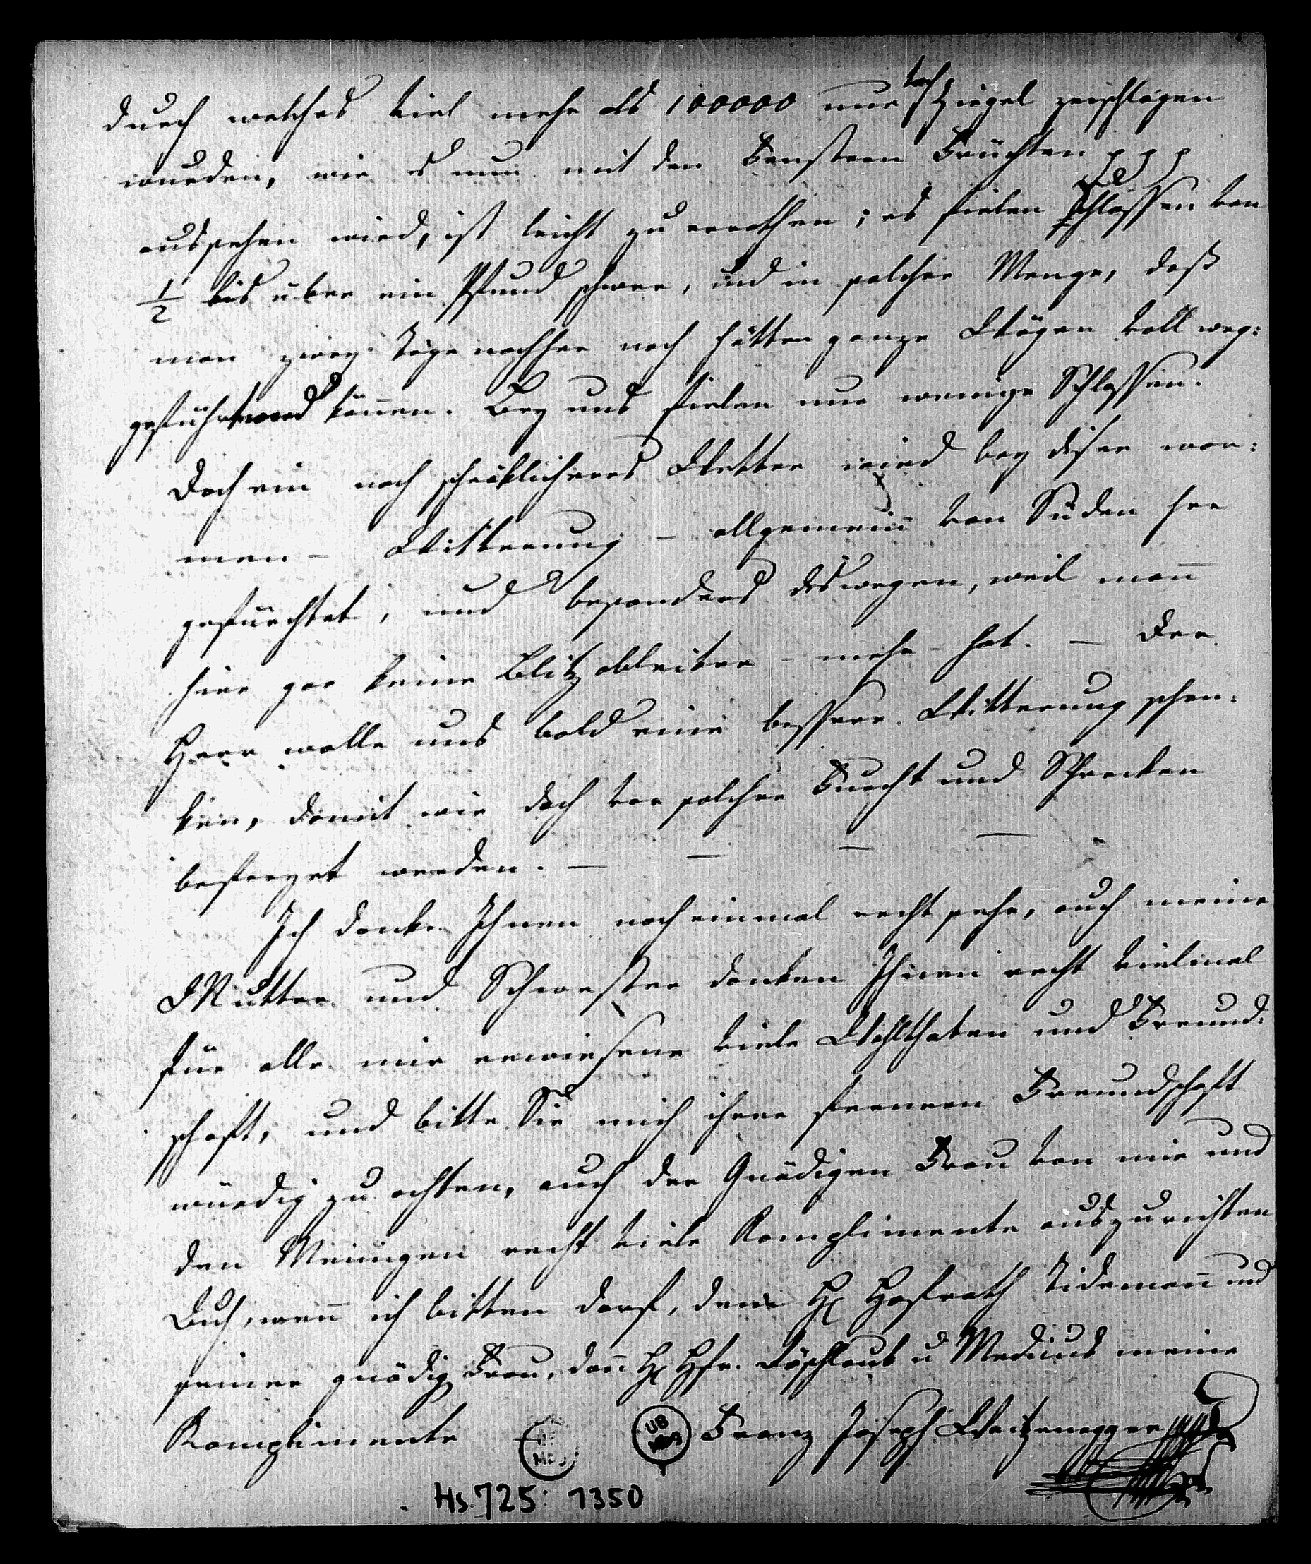 durch welches viel mehr als 100000 nur Dach Ziegel zerschlagen
wurden, wie es nun mit den Fenstern Früchten ppp
aussehen wird, ist leicht zu errathen; es fielen Schlossen von
1/2 bis über ein Pfund schwer, und in solcher Menge, daß
man zwey Tage nachher noch hätten ganze Wägen voll weg=
geführt werd können. Bey uns fielen nur wenige Schlossen.
Doch ein noch schröklichers Wetter wird bey diser war=
men – Witterung – allgemein von Süden her
gefürchtet, und besonders deswegen, weil mann
hier gar keine Blitzableiter – mehr hat. – Der
Herr wolle uns bald eine bessere Witterung schen=
ken, damit wir doch vor solcher Furcht und Schrecken
befreyet werden. – – – –
Ich danke Ihnen noch einmal recht sehr, auch meine
Mutter und Schwester danken Ihnen recht vielmal
für alle mir erwiesene viele Wohlthaten und Freund=
schaft, und bitte Sie mich ihrer fernern Freundschaft
würdig zu achten, auch der Gnädigen Frau von mir und
den Meinigen recht viele Komplimente auszurichten
Auch, wenn ich bitten darf, dem H. Hofrath Tidemann und
seiner gnädig Frau, dann H. Hfr. Röschlaub u Medicus meine
Komplimente
Franz Joseph Weitzenegger
UB
MBG
Hs. 725: 1350